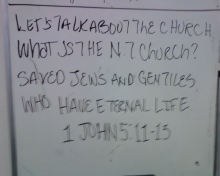 LET'S TALK ABOUT THE CHURCH
WHAT IS THE NT CHURCH?
SAVED JEWS AND GENTILES
WHO HAVE ETERNAL LIFE
1 JOHN 5:11-13